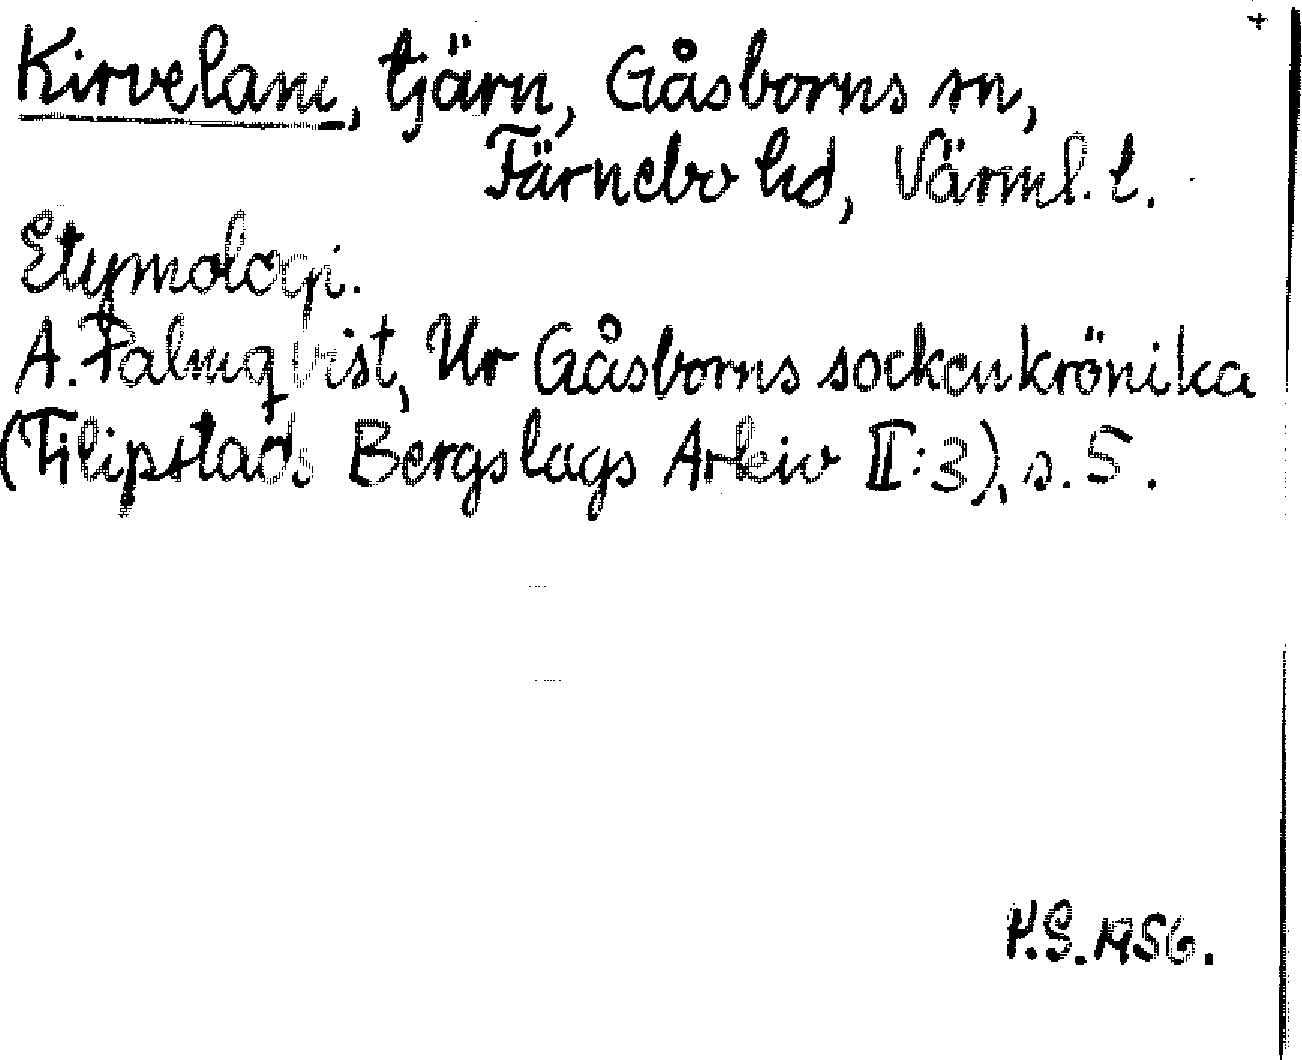 +
Kirvelam, tjärn, Gåsborns sn,
Färnebo hd, Värml. l.
Etymologi.
A. Palmqvist, Ur Gåsborns sockenkrönika
(Filipstads Bergslags Arkiv II:3), s. 5.
H.S. 1956.